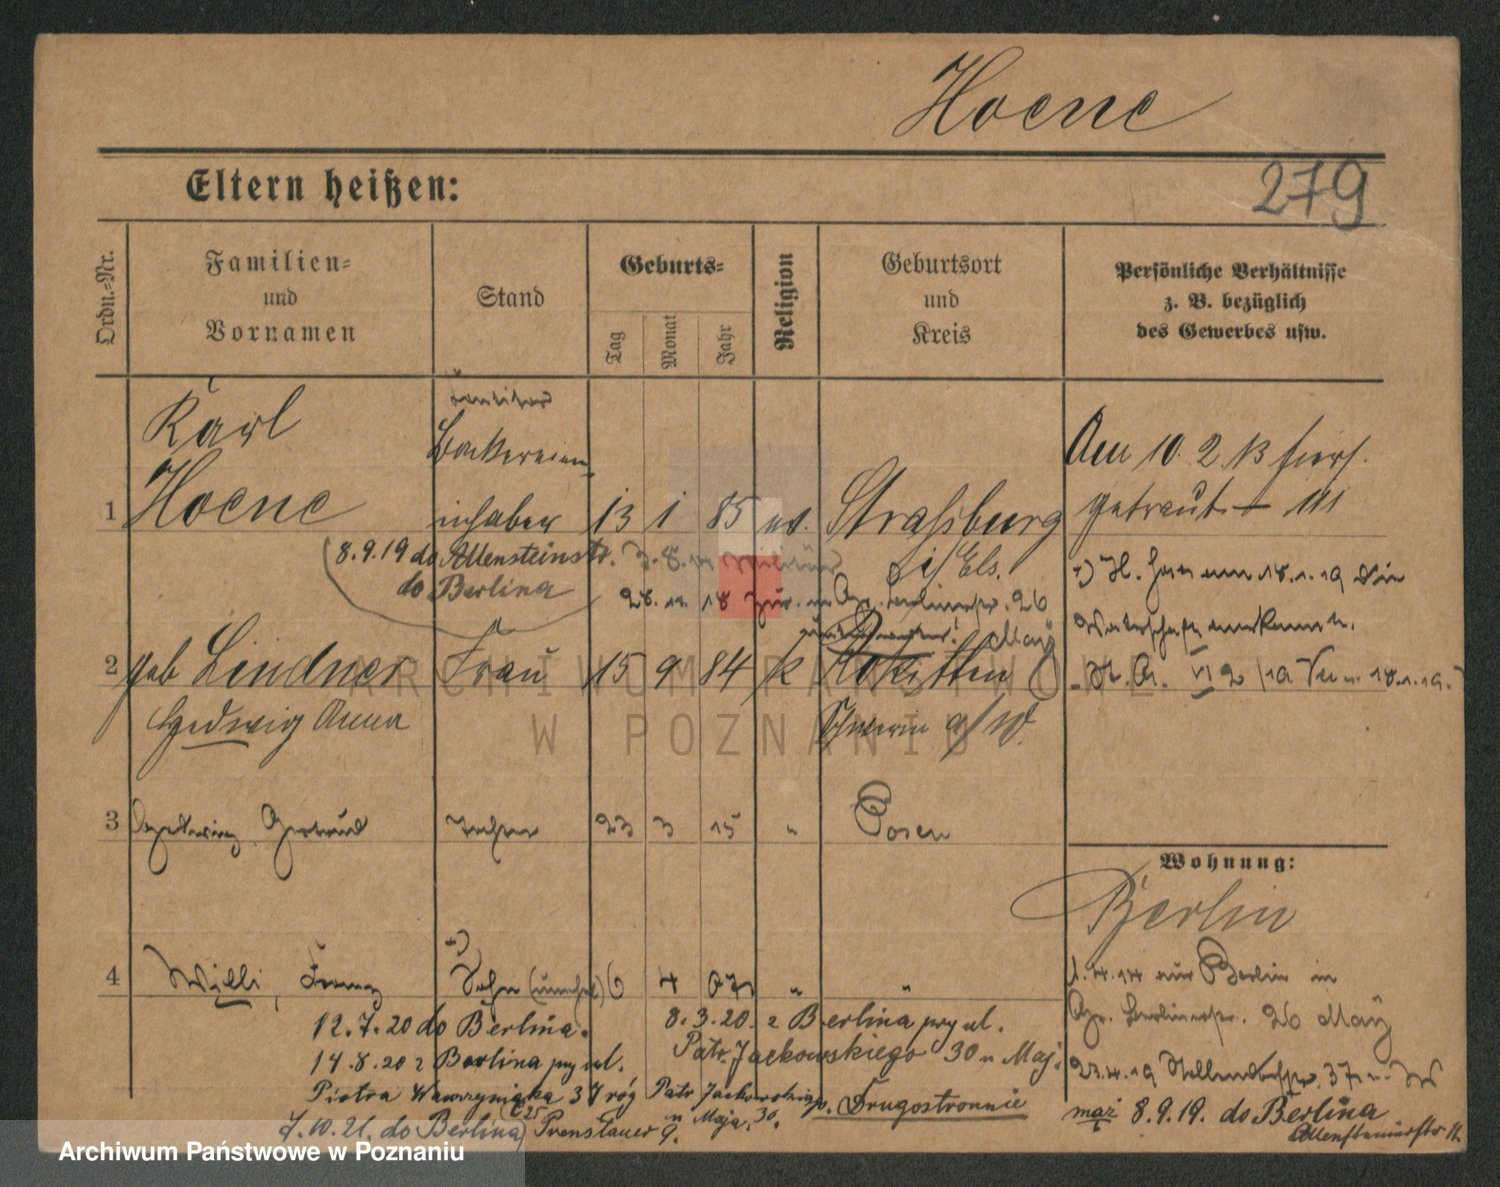 Hoene
Eltern heißen:
279
Ordn.-Nr.
Familien-
und
Vornamen
Stand
Geburts-
Tag
Monat
Jahr
Religion
Geburtsort
und
Kreis
Persönliche Verhältnisse
z. B. bezüglich
des Gewerbes usw.
Karl
Am 10. 2. 13 hier
1 Hoene inhaber 13 1 85 ev. Straßburg
getraut
8.9.19 do Allensteinstr.
do Berlina
i/Els.
+) H. hat am 18.1.19 die
Vaterschaft anerkannt.
2 geb Lindner Frau 15 9 84 k Rokitten
Hedwig Anna
Schwerin a/W.
3 Hedwig Gertrud Tochter 23 3 15 " Posen
Wohnung:
Berlin
+)
4 Willi, Franz Sohn (unehel) 6 4 07 " "
1.4.14 aus Berlin in
Gr. Berlinerstr. 26 May
12.7.20 do Berlina.
8.3.20. z Berlina przy ul.
Patr. Jackowskiego 30 u Maj.
14.8.20 z Berlina przy ul.
Piotra Wawrzyniaka 37 róg Patr Jackowskiego.
Drugostronnie
maż 8.9.19. do Berlina
Allensteinerstr 11.
7.10.21. do Berlina, Prenslauer
u Maja, 30.
ARCHIWUM PAŃSTWOWE
W POZNANIU
Archiwum Państwowe w Poznaniu